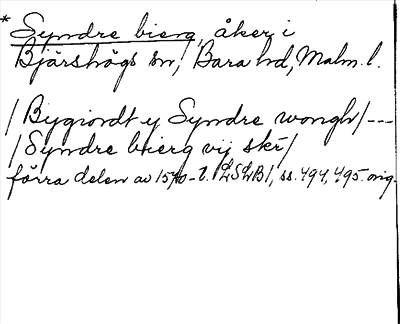 * Syndre bierg, åker i
Bjärshögs sn, Bara hd, Malm. l.
/Bygiordt y Syndre wongh/---
/Syndre bierg vij skr/
förra delen av 1570-t. (LSLB), ss. 494, 495. orig.